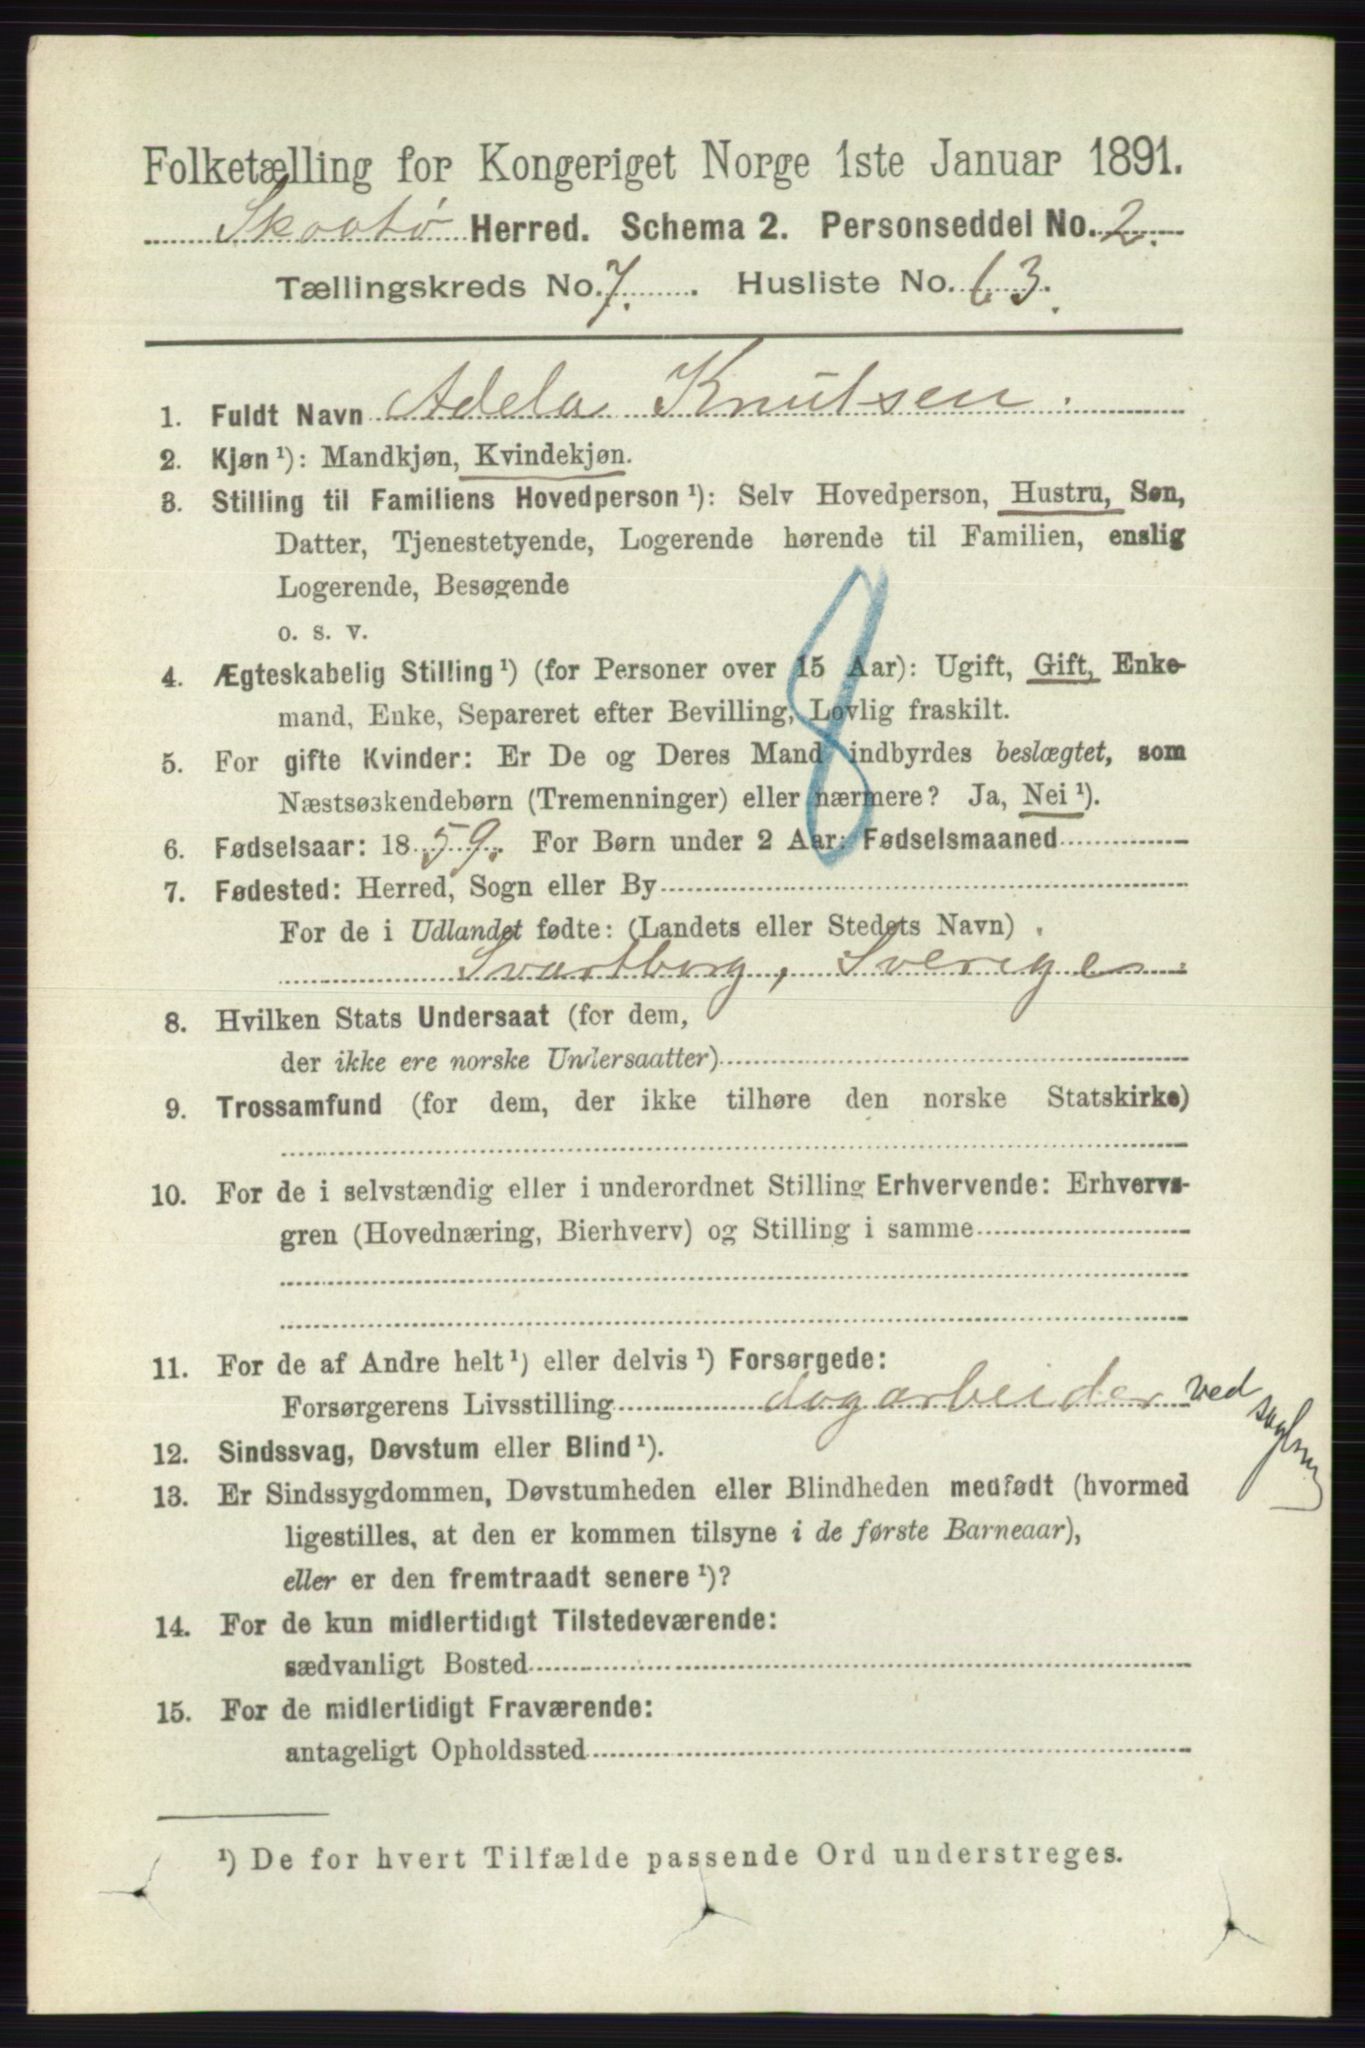 Folketælling for Kongeriget Norge 1ste Januar 1891.
Skaatø Herred. Schema 2. Personseddel No. 2.
Tællingskreds No. 7. Husliste No. 63.
1. Fuldt Navn Adela Knutsen.
2. Kjøn ¹): Mandkjøn, Kvindekjøn.
3. Stilling til Familiens Hovedperson ¹): Selv Hovedperson, Hustru, Søn,
Datter, Tjenestetyende, Logerende hørende til Familien, enslig
Logerende, Besøgende
o. s. v.
8
4. Ægteskabelig Stilling ¹) (for Personer over 15 Aar): Ugift, Gift, Enke-
mand, Enke, Separeret efter Bevilling, Lovlig fraskilt.
5. For gifte Kvinder: Er De og Deres Mand indbyrdes beslægtet, som
Næstsøskendebørn (Tremenninger) eller nærmere? Ja, Nei ¹).
6. Fødselsaar: 1859. For Børn under 2 Aar: Fødselsmaaned
7. Fødested: Herred, Sogn eller By
For de i Udlandet fødte: (Landets eller Stedets Navn)
Svartborg, Sverige
8. Hvilken Stats Undersaat (for dem,
der ikke ere norske Undersaatter)
9. Trossamfund (for dem, der ikke tilhøre den norske Statskirke)
10. For de i selvstændig eller i underordnet Stilling Erhvervende: Erhvervs-
gren (Hovednæring, Bierhverv) og Stilling i samme
11. For de af Andre helt ¹) eller delvis ¹) Forsørgede:
Forsørgerens Livsstilling dagarbeider ved
12. Sindssvag, Døvstum eller Blind ¹).
13. Er Sindssygdommen, Døvstumheden eller Blindheden medfødt (hvormed
ligestilles, at den er kommen tilsyne i de første Barneaar),
eller er den fremtraadt senere ¹)?
14. For de kun midlertidigt Tilstedeværende:
sædvanligt Bosted
15. For de midlertidigt Fraværende:
antageligt Opholdssted
¹) De for hvert Tilfælde passende Ord understreges.